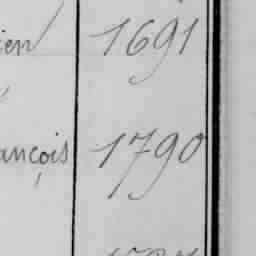 ien 1691
ançois 1790